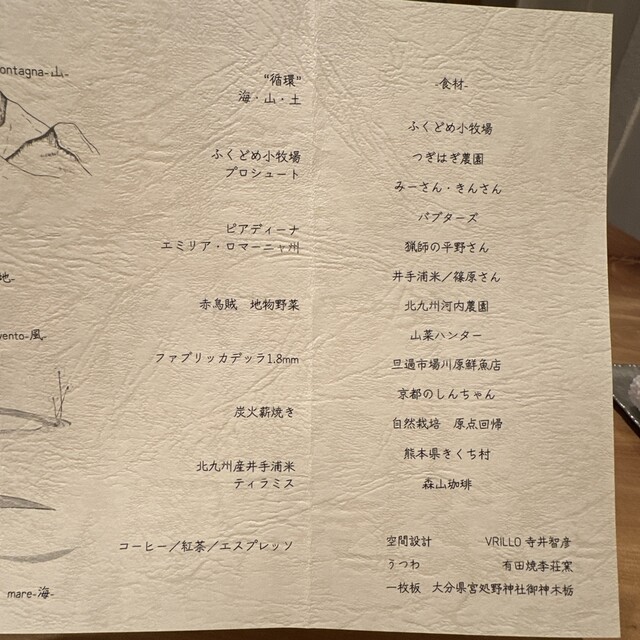 ontagna-山-
地-
vento-風-
mare-海-
"循環"
海・山・土
ふくどめ小牧場
プロシュート
ピアディーナ
エミリア・ロマーニャ州
赤烏賊 地物野菜
ファブリッカデッラ1.8mm
炭火薪焼き
北九州産井手浦米
ティラミス
コーヒー／紅茶／エスプレッソ
-食材-
ふくどめ小牧場
つぎはぎ農園
みーさん・きんさん
バブターズ
猟師の平野さん
井手浦米／篠原さん
北九州河内農園
山菜ハンター
旦過市場川原鮮魚店
京都のしんちゃん
自然栽培 原点回帰
熊本県きくち村
森山珈琲
空間設計 VRILLO 寺井智彦
うつわ 有田焼李荘窯
一枚板 大分県宮処野神社御神木栃